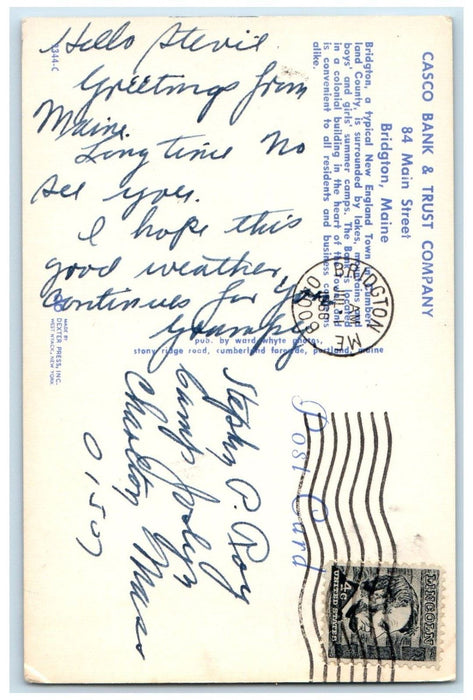 Hello Stevie
Greetings from
Maine.
Long time No
see you.
I hope this
good weather
continues for you
Grampy
CASCO BANK & TRUST COMPANY
84 Main Street
Bridgton, Maine
Bridgton, a typical New England Town in Cumber-
land County, is surrounded by lakes, mountains and
boys' and girls' summer camps. The Bank is located
in a colonial building in the heart of the town and
is convenient to all residents and business
alike.
pub. by ward whyte photos,
stony ridge road, cumberland foreside, portland, maine
MADE BY
DEXTER PRESS, INC.
WEST NYACK, NEW YORK
Post Card
BRIDGTON ME
AM
1968
LINCOLN
4¢
UNITED STATES
Stephen P. Roy
Camp Joslyn
Charlton Mass
01507